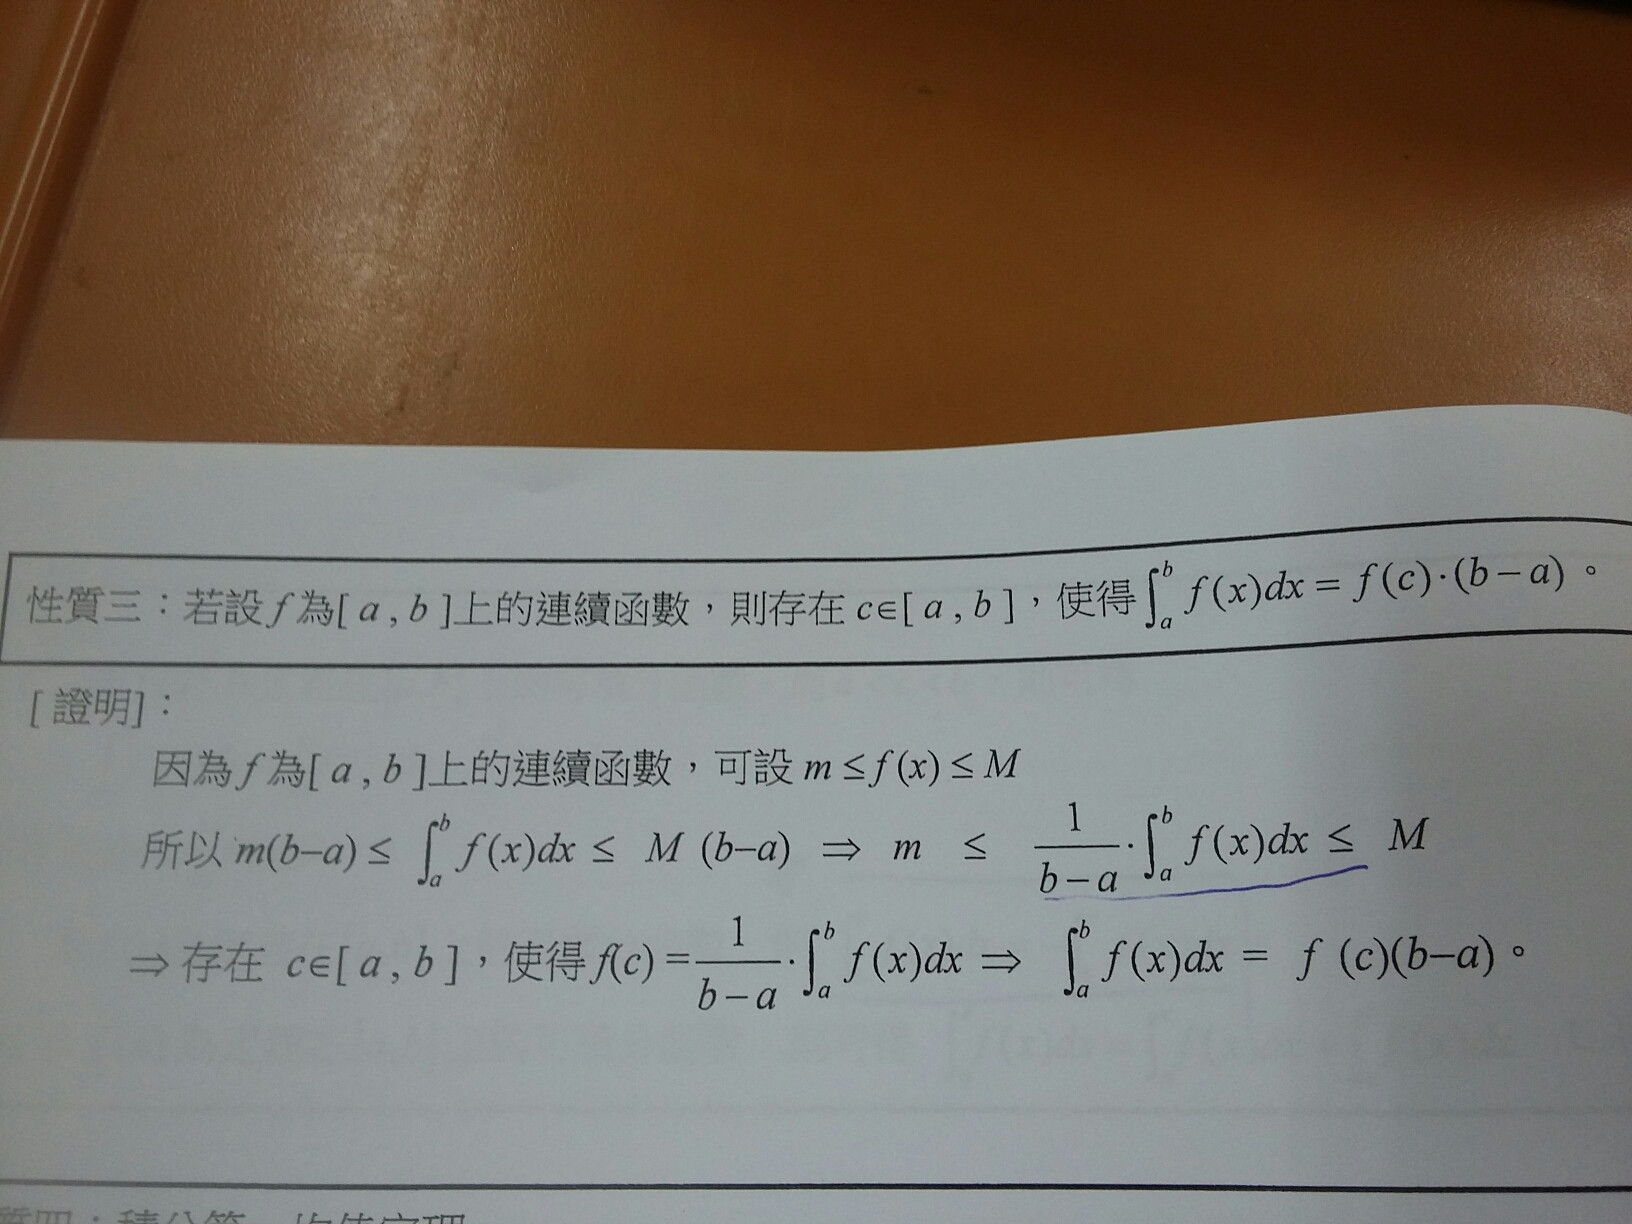 性質三：若設 f 為[ a , b ]上的連續函數，則存在 c∈[ a , b ]，使得∫_a^b f(x)dx = f(c)·(b−a)。
[ 證明]：
因為 f 為[ a , b ]上的連續函數，可設 m ≤ f (x) ≤ M
所以 m(b−a) ≤ ∫_a^b f(x)dx ≤ M (b−a) ⇒ m ≤ 1/(b−a)·∫_a^b f(x)dx ≤ M
⇒ 存在 c∈[ a , b ]，使得 f(c) = 1/(b−a)·∫_a^b f(x)dx ⇒ ∫_a^b f(x)dx = f (c)(b−a)。